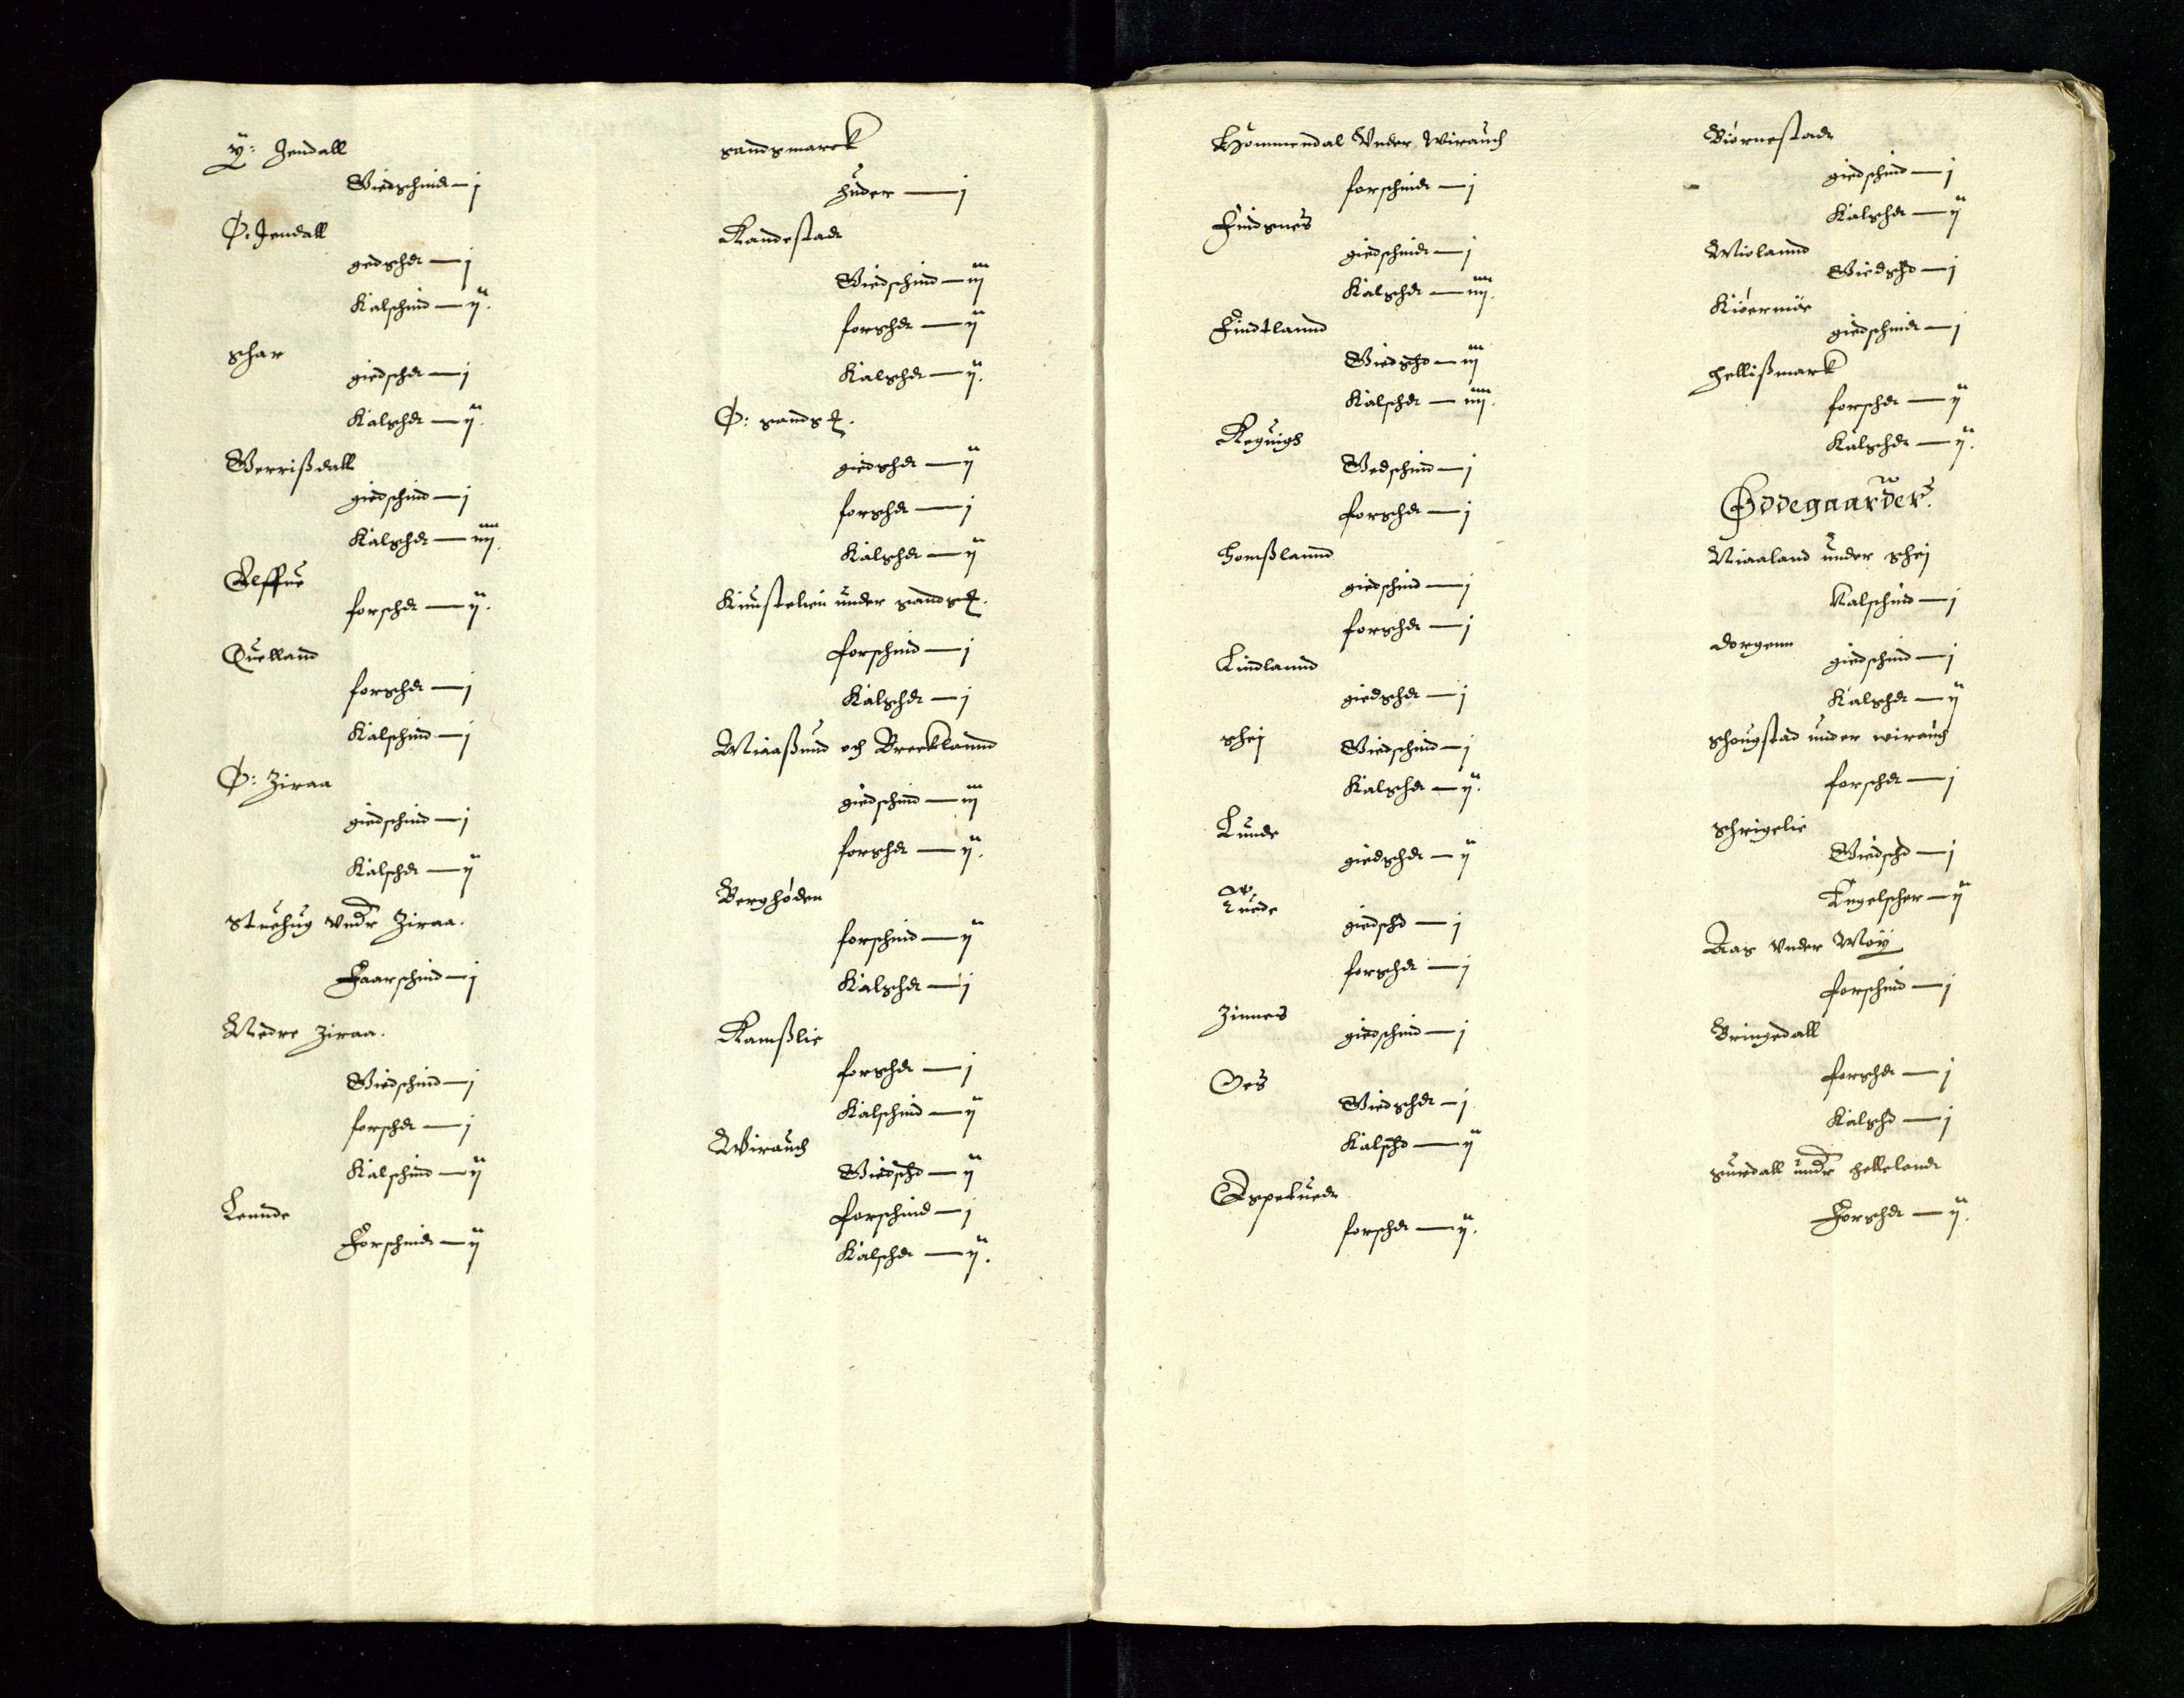 Y: Jendall
Giedschind — j
Ø: Jendall
gedschd — j
Kalschind — ij.
schar
giedschd — j
Kalschd — ij.
Verrißdall
giedschind — j
Kalschd — iiij.
Aeffue
forschd — ij.
Quelland
forschd — j
Kalschind — j
Ø: Ziraa
giedschind — j
Kalschd — ij
Stuehug vndr Ziraa.
Faarschind — j
Nedre Ziraa.
Giedschind — j
forschd — j
Kalschind — ij
Leunde
Forschind — ij
sandsmarck
huder — j
Randestad
Giedschind — iij
forschd — ij
Kalschd — ij.
Ø: sands
giedschd — ij
forschd — j
Kalschd — ij
under sands
forschind — j
Kalschd — j
Miaaßund och Brecklannd
giedschind — iij
forschd — ij.
Berghøden
forschind — ij
Kalschd — j
Ramßlie
forschd — j
Kalschind — ij
Wirauch
Giedschd — ij
forschind — j
Kalschd — ij.
Hommendal Vnder Wirauch
forschind — j
Findsnes
giedschind — j
Kalschd — iiij.
Findtlannd
Giedschd — iij
Kalschd — iiij.
Reguigh
Gedschind — j
forschd — j
Homßlannd
giedschind — j
forschd — j
Lindlannd
giedschd — j
schej
Giedschind — j
Kalschd — ij.
Lunde
giedschd — ij
Tuede
giedschd — j
forschd — j
Zinnes
giedschind — j
Oes
Giedschd — j
Kalschd — ij
Espetued
forschd — ij.
Biørnestad
giedschind — j
Kalschd — ij
Miolannd
Giedschd — j
Kiørmoe
giedschind — j
hellißmark
forschd — ij
Kalschd — ij.
Ødegaarder
Niaaland under schej
Kalschind — j
dorgenn
giedschind — j
Kalschd — ij
schougstad under wirauch
forschd — j
schrigelie
Giedschd — j
Engelscher — ij
Aas vnder Moÿ
forschind — j
Bringedall
forschd — j
Kalschd — j
suedall undr helleland
Forschd — ij.